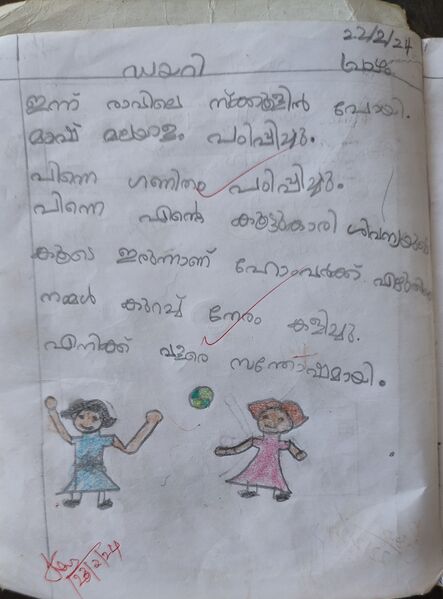 22/2/24
ഡയറി വ്യാഴം
ഇന്ന് രാവിലെ സ്ക്കൂളിൽ പോയി.
മാഷ് മലയാളം പഠിപ്പിച്ചു.
പിന്നെ ഗണിതം പഠിപ്പിച്ചു.
പിന്നെ എൻ്റെ കൂട്ടുകാരി ശിവന്യയുടെ
കൂടെ ഇരുന്നാണ് ഹോംവർക്ക് എഴുതിയത്
നമ്മൾ കുറച്ച് നേരം കളിച്ചു.
എനിക്ക് വളരെ സന്തോഷമായി.
23/2/24